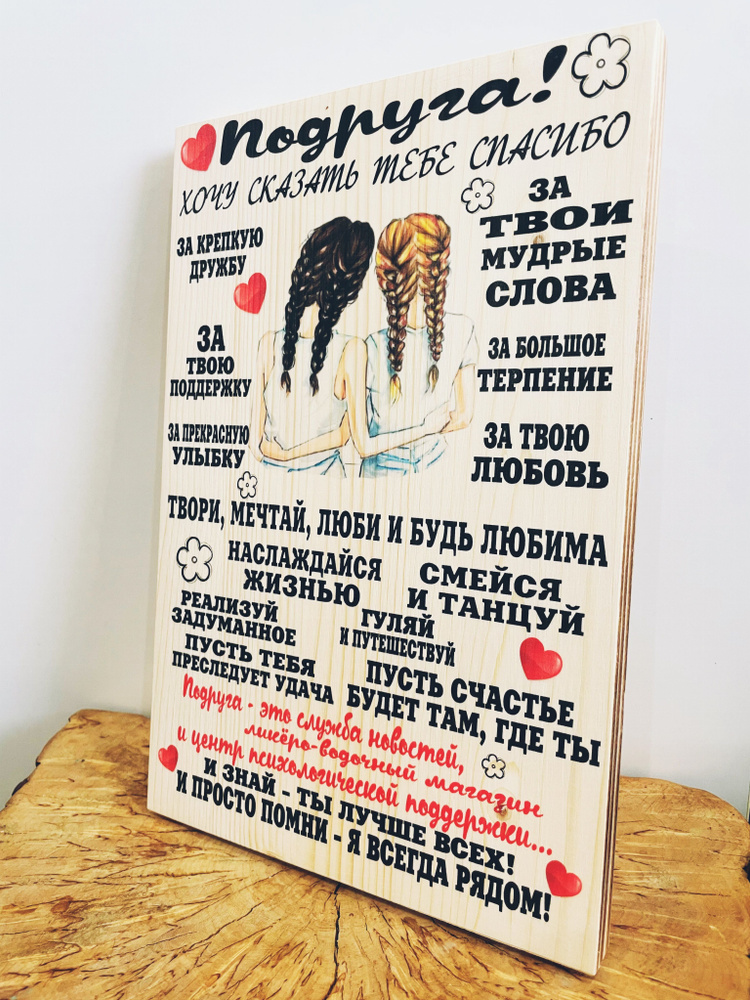 Подруга!
ХОЧУ СКАЗАТЬ ТЕБЕ СПАСИБО
ЗА КРЕПКУЮ
ДРУЖБУ
ЗА
ТВОЮ
ПОДДЕРЖКУ
ЗА ПРЕКРАСНУЮ
УЛЫБКУ
ЗА
ТВОИ
МУДРЫЕ
СЛОВА
ЗА БОЛЬШОЕ
ТЕРПЕНИЕ
ЗА ТВОЮ
ЛЮБОВЬ
ТВОРИ, МЕЧТАЙ, ЛЮБИ И БУДЬ ЛЮБИМА
НАСЛАЖДАЙСЯ
ЖИЗНЬЮ
СМЕЙСЯ
И ТАНЦУЙ
РЕАЛИЗУЙ
ЗАДУМАННОЕ
ГУЛЯЙ
И ПУТЕШЕСТВУЙ
ПУСТЬ ТЕБЯ
ПРЕСЛЕДУЕТ УДАЧА
ПУСТЬ СЧАСТЬЕ
БУДЕТ ТАМ, ГДЕ ТЫ
Подруга - это служба новостей,
ликёро-водочный магазин
и центр психологической поддержки...
И ЗНАЙ - ТЫ ЛУЧШЕ ВСЕХ!
И ПРОСТО ПОМНИ - Я ВСЕГДА РЯДОМ!